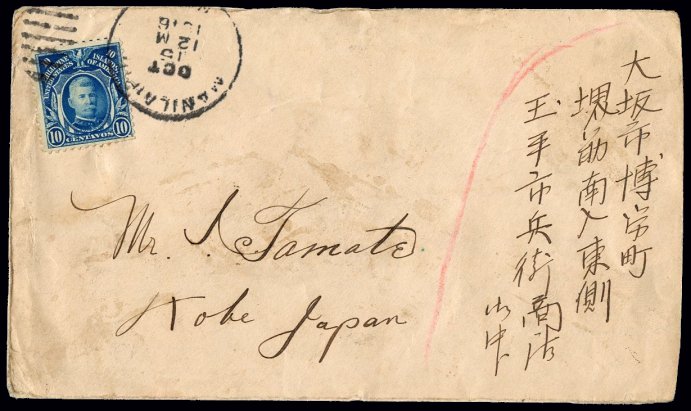 PHILIPPINE ISLANDS
UNITED STATES OF AMERICA
10 CENTAVOS 10
MANILA
OCT
15
12 M
Mr. I. Tamate
Kobe Japan
大坂市博労町
堺筋南入東側
玉手市兵衛商店